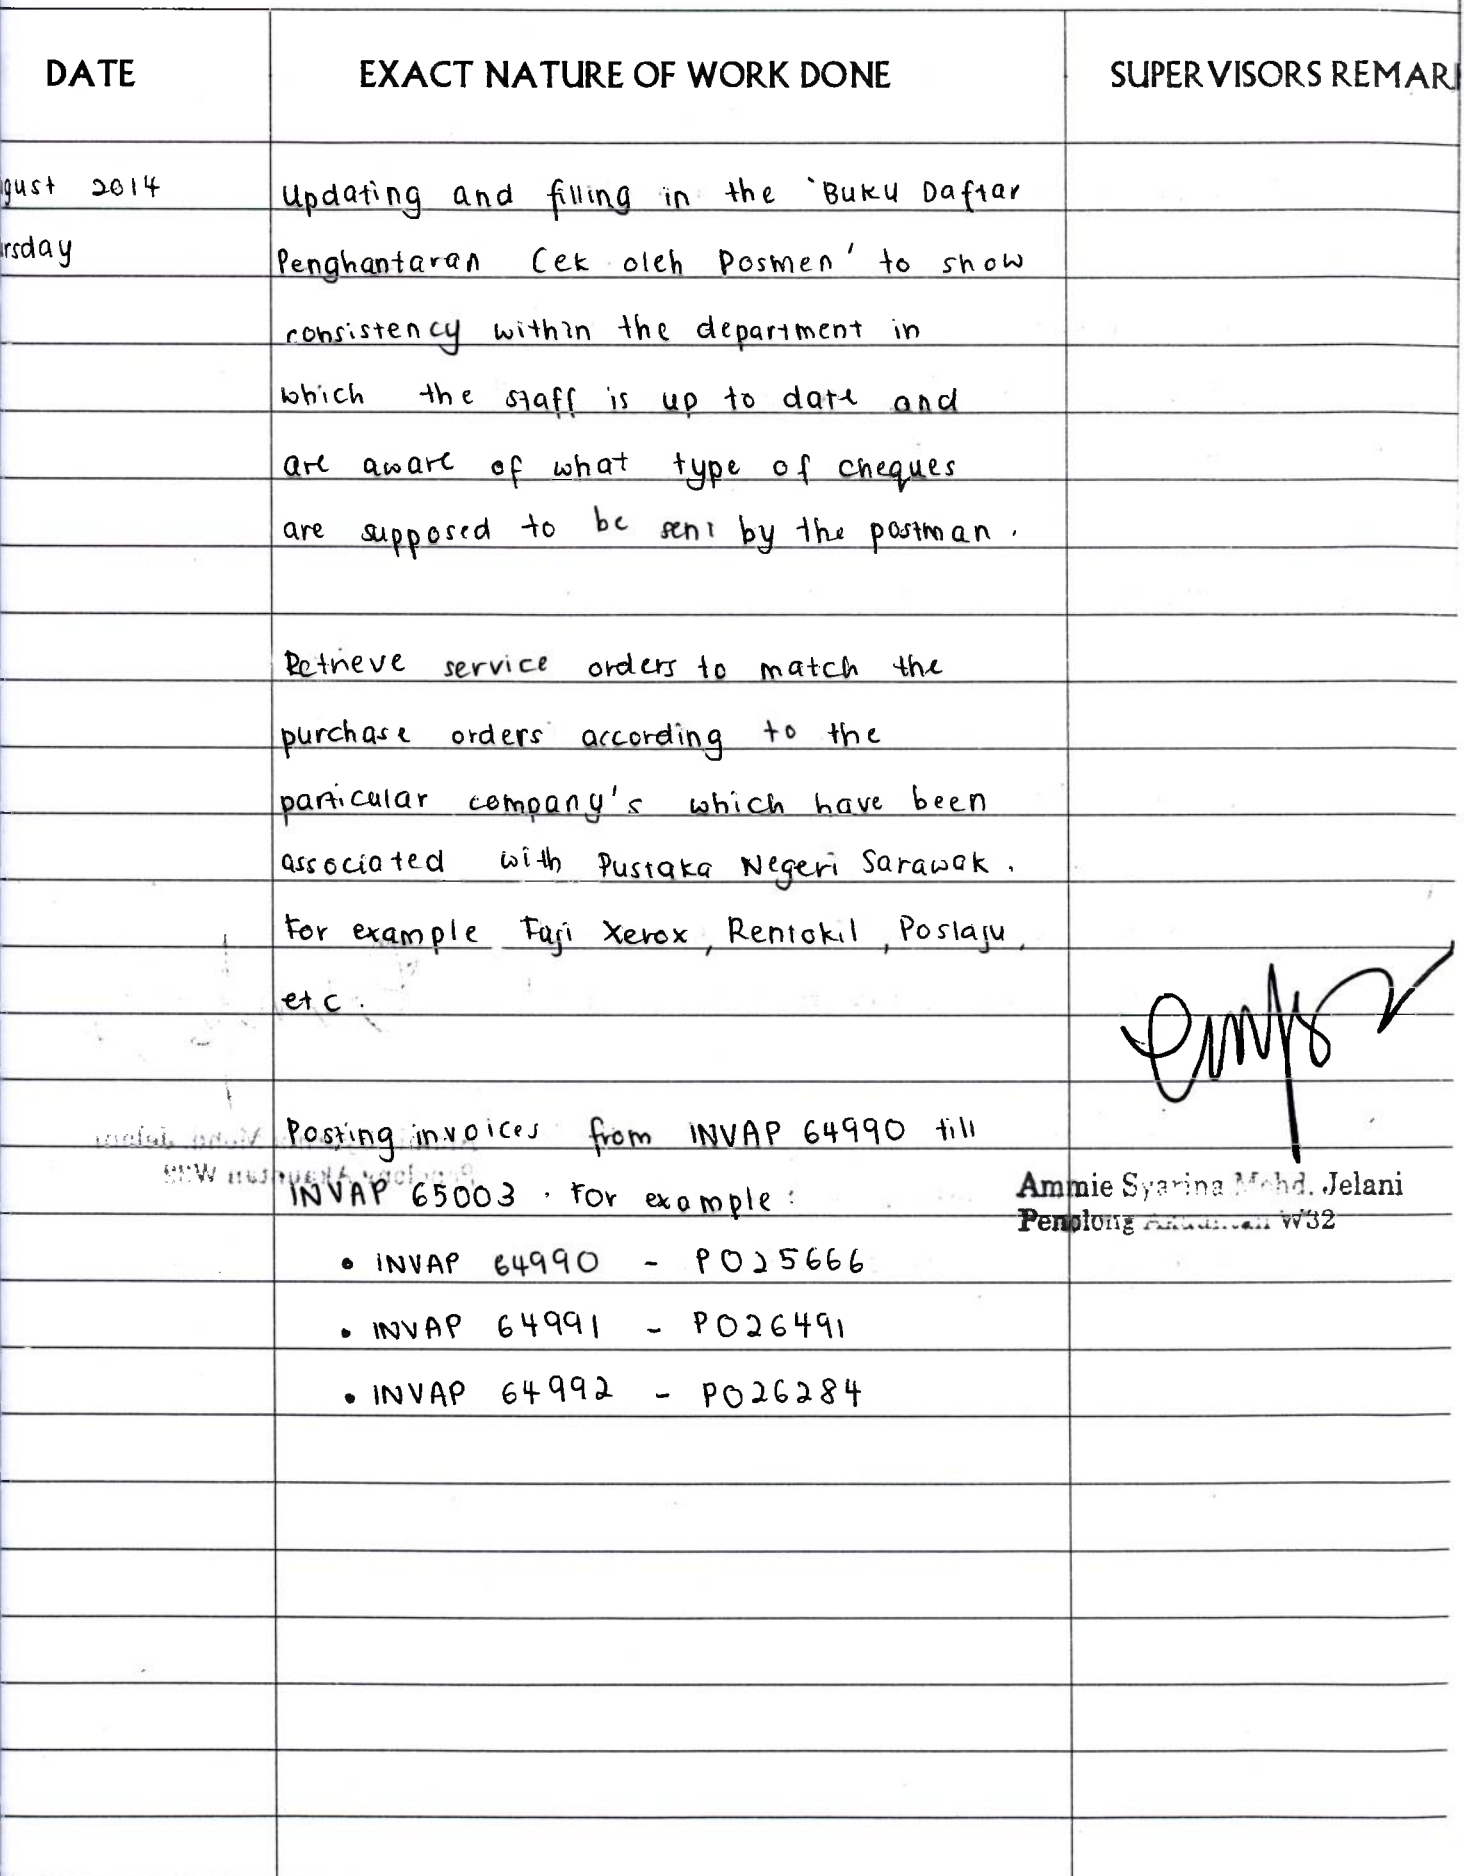 DATE EXACT NATURE OF WORK DONE SUPERVISORS REMAR
gust 2014 Updating and filling in the 'Buku Daftar
rsday Penghantaran Cek oleh Posmen' to show
consistency within the department in
which the staff is up to date and
are aware of what type of cheques
are supposed to be sent by the postman.
Retrieve service orders to match the
purchase orders according to the
particular company's which have been
associated with Pustaka Negeri Sarawak.
For example Fuji Xerox, Rentokil, Poslaju,
etc.
Posting invoices from INVAP 64990 till
INVAP 65003. For example:
Ammie Syarina Mohd. Jelani
Penolong Akauntan W32
• INVAP 64990 - PO25666
• INVAP 64991 - PO26491
• INVAP 64992 - PO26284